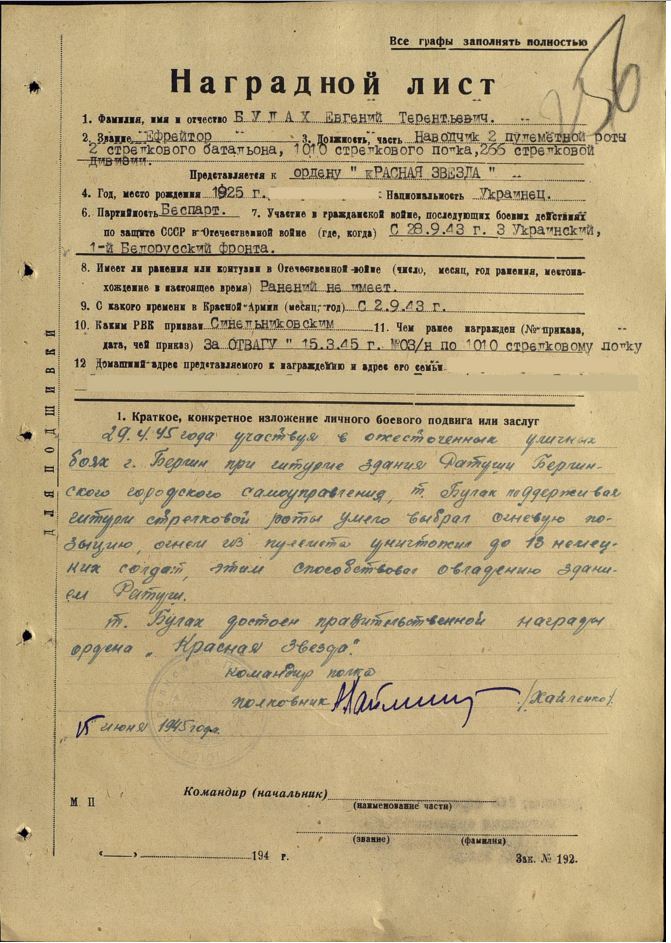 Все графы заполнять полностью
256
Наградной лист
1. Фамилия, имя и отчество БУЛАХ Евгений Терентьевич.
2. Звание Ефрейтор 3. Должность, часть Наводчик 2 пулеметной роты
2 стрелкового батальона, 1010 стрелкового полка, 266 стрелковой
дивизии.
Представляется к ордену " кРАСНАЯ ЗВЕЗДА "
4. Год, место рождения 1925 г. Национальность Украинец.
6. Партийность Беспарт. 7. Участие в гражданской войне, последующих боевых действиях
по защите СССР в Отечественной войне (где, когда) С 28.9.43 г. 3 Украинский,
1-й Белорусский фронта.
8. Имеет ли ранения или контузии в Отечественной войне (число, месяц, год ранения, местона-
хождение в настоящее время) Ранений не имеет.
9. С какого времени в Красной Армии (месяц, год) С 2.9.43 г.
10. Каким РВК призван Синельниковским 11. Чем ранее награжден (№ приказа,
дата, чей приказ) За ОТВАГУ " 15.3.45 г. №03/н по 1010 стрелковому полку
12 Домашний адрес представляемого к награждению и адрес его семьи
ДЛЯ ПОДШИВКИ
1. Краткое, конкретное изложение личного боевого подвига или заслуг
29.4.45 года участвуя в ожесточенных уличных
боях г. Берлин при штурме здания Ратуши Берлин-
ского городского самоуправления, т. Булах поддерживая
штурм стрелковой роты умело выбрал огневую по-
зыцию, огнем из пулемета уничтожил до 13 немец-
ких солдат, этим способствовал овладению здани-
ем Ратуши.
т. Булах достоен правительственной награды
ордена „Красная Звезда".
командир полка
полковник /Хайленко/
15 июня 1945 года.
Командир (начальник)
М П
(наименование части)
(звание) (фамилия)
« » 194 г. Зак. № 192.